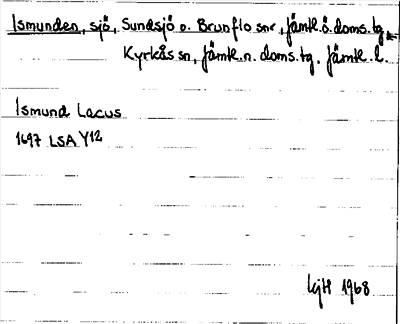 Ismunden, sjö, Sundsjö o. Brunflo snr, Jämtl. ö. doms. tg
Kyrkås sn, Jämtl. n. doms. tg. Jämtl. l.
Ismund Lacus
1697 LSA Y12
1968